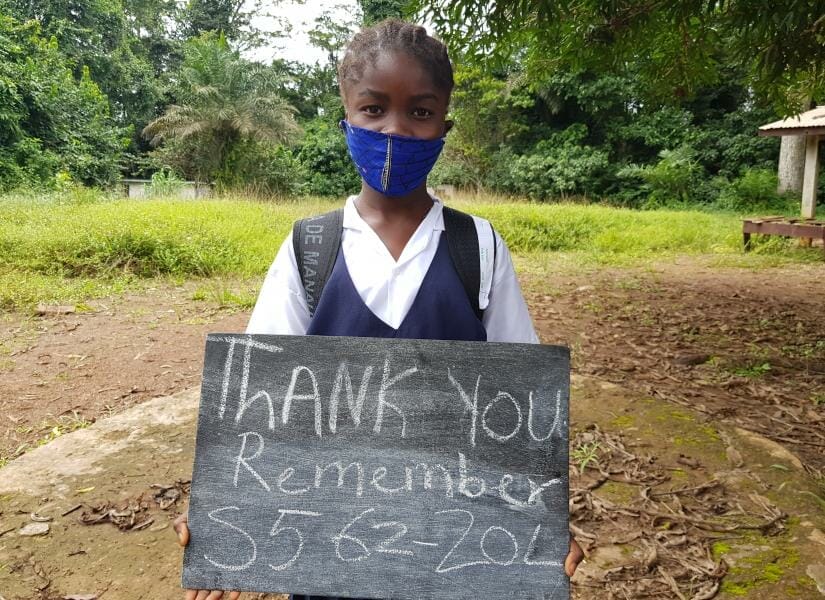 DE MANA
THANK YOU
Remember
S5 62-204